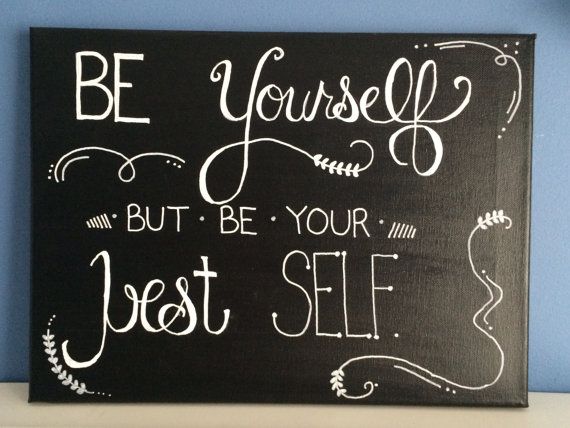 BE Yourself
BUT · BE · YOUR
best SELF.